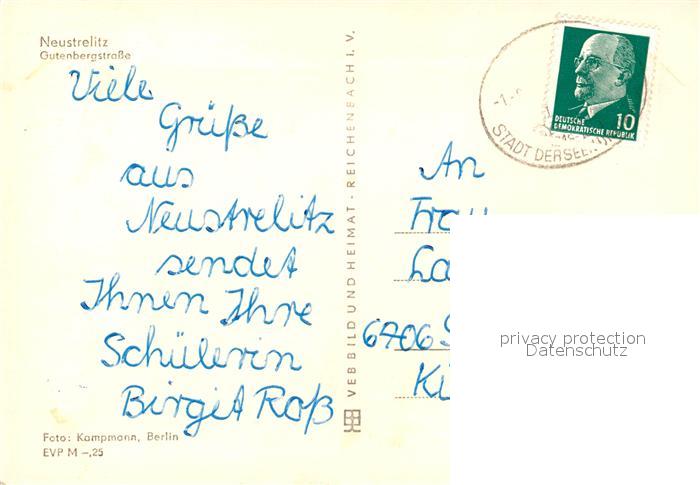 Neustrelitz
Gutenbergstraße
Viele
Grüße
aus
Neustrelitz
sendet
Ihnen Ihre
Schülerin
Birgit Roß
Foto: Kampmann, Berlin
EVP M –,25
VEB BILD UND HEIMAT · REICHENBACH I. V.
10
DEUTSCHE
DEMOKRATISCHE REPUBLIK
STADT DER SEEN
An
Frau
La
6706
Kü
privacy protection
Datenschutz